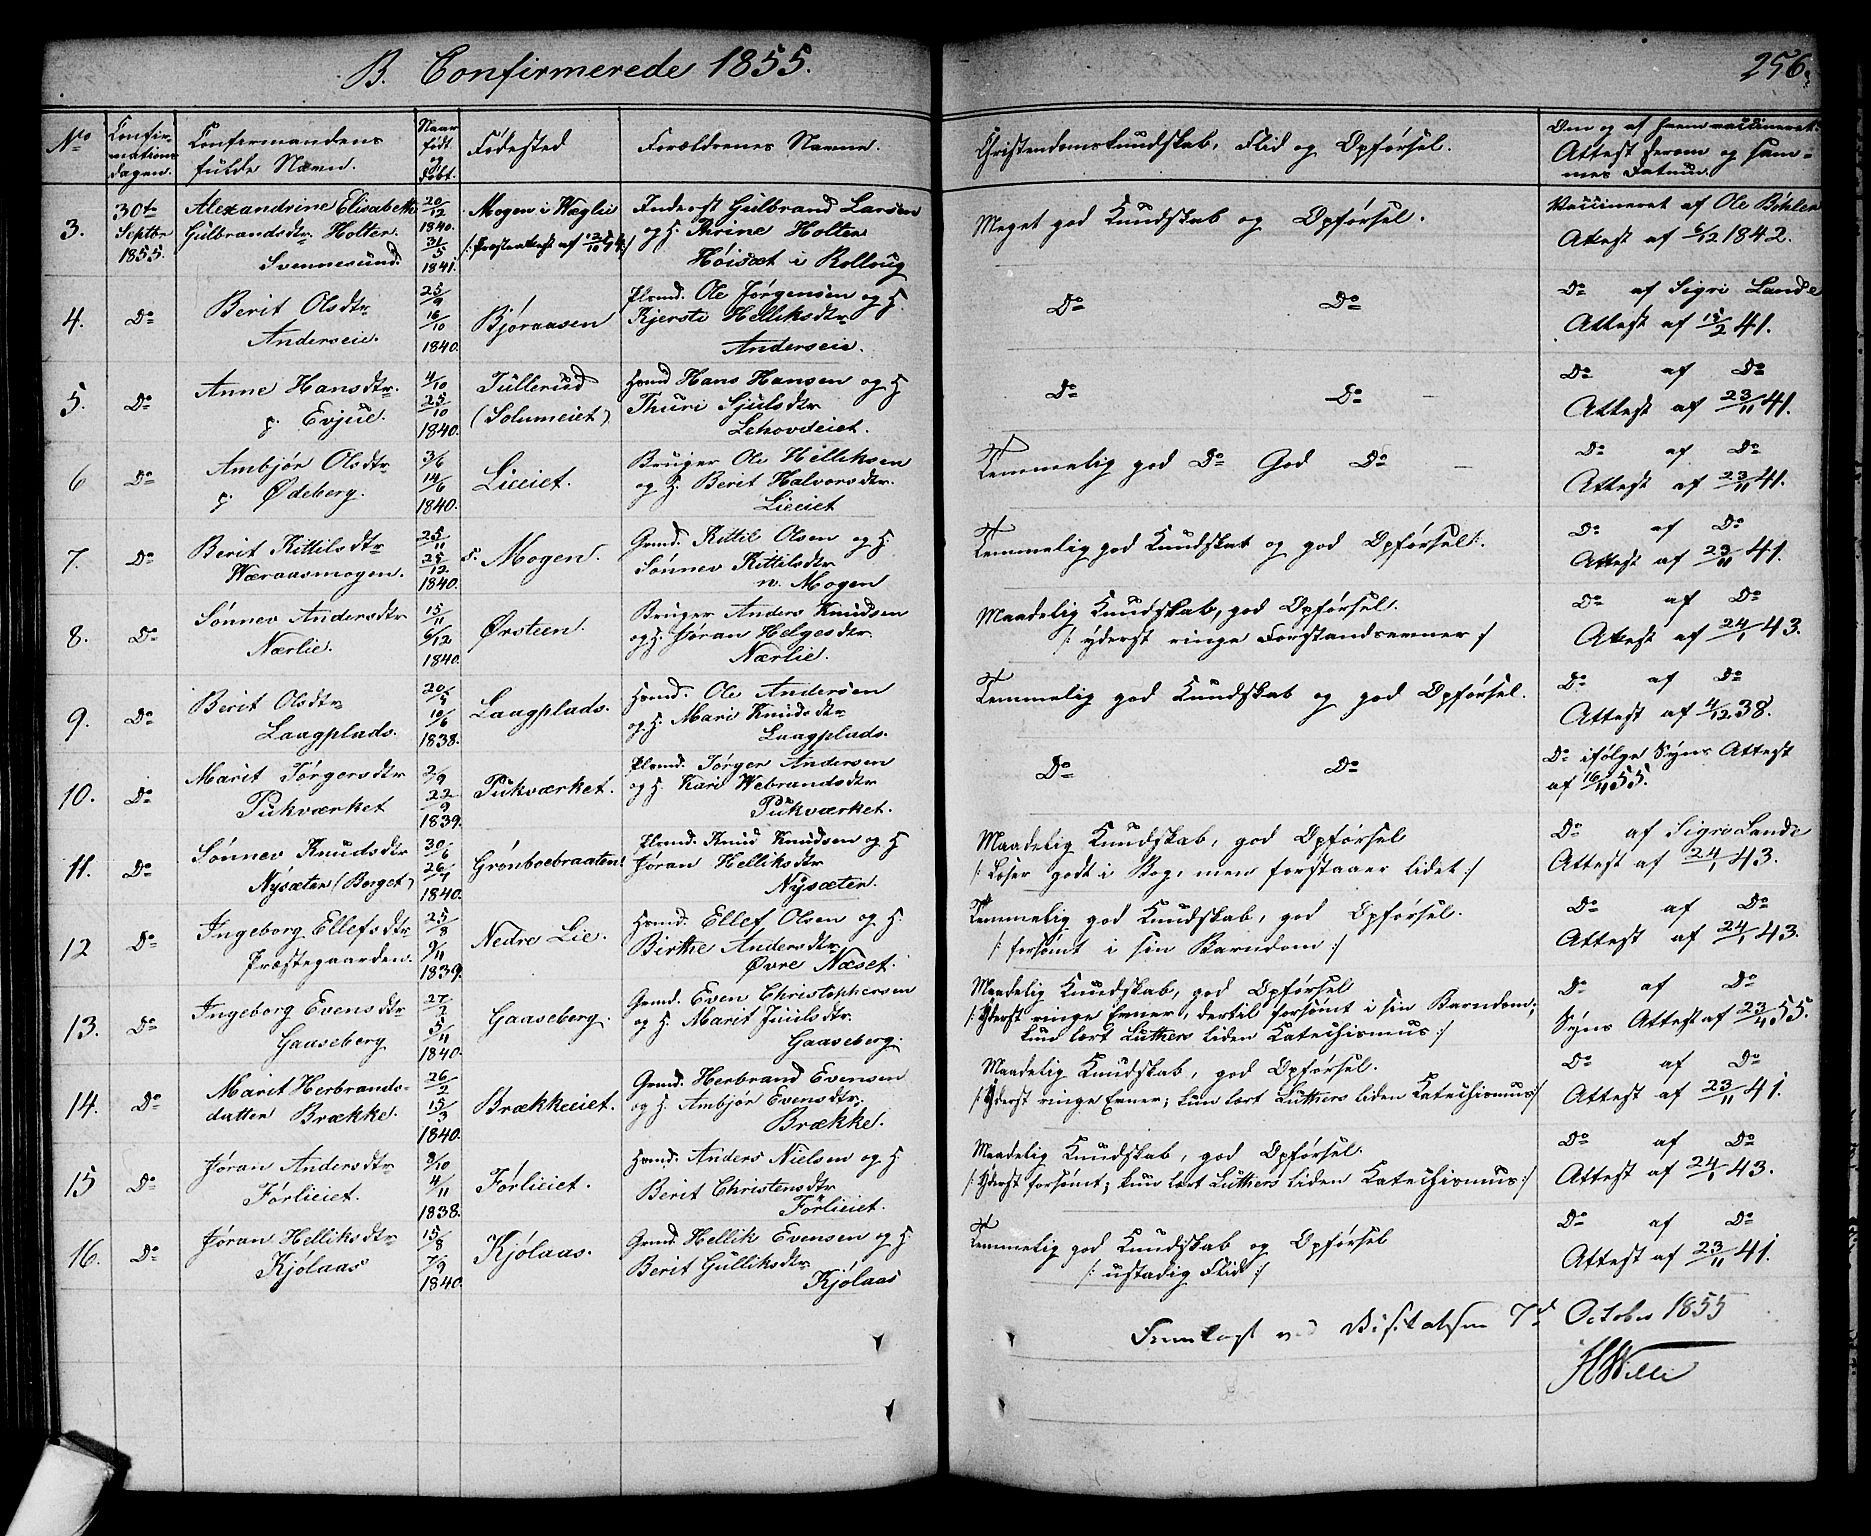 B. Confirmerede 1855.
256.
No
Confir-
mations
dagen.
Confirmandens
fulde Navn.
Naar
født
og
døbt.
Fødested
Forældrenes Navne.
Christendomskundskab, Flid og Opførsel.
Om og af hvem vaccineret.
Attest derom og sam-
mes Datum.
3.
30te
Septbr
1855.
Alexandrine Elisabeth
Gulbrandsdtr Holter
Svennesund.
20/12
1840.
31/5
1841.
Mogen i Wæglie
Inderst Gulbrand Larsen
og H. Nirine Holter
Høisæt i Rolloug
Meget god Kundskab og Opførsel.
Vaccineret af Ole Bihler
Attest af 6/12 1842.
4.
Do
Berit Olsdtr
Anderseie.
25/9
16/10
1840.
Bjøraasen
Plsmd. Ole Jørgensen og H.
Kjersti Helliksdtr
Anderseie.
Do Do
Do af Sigri Lande
Attest af 15/2 41.
5.
Do
Anne Hansdtr.
p. Evjue.
4/10
25/10
1840.
Tullerud
(Solumeiet)
Hsmd Hans Hansen og H
Thuri Sjulsdtr
Lehovdeiet.
Do Do
Do af Do
Attest af 23/11 41.
6
Do
Ambjør Olsdtr
p. Ødeberg.
3/6
14/6
1840.
Lieeiet.
Bruger Ole Helliksen
og H. Berit Halvorsdtr.
Lieeiet
Temmelig god Do God Do
Do af Do
Attest af 23/11 41.
7.
Do
Berit Kittilsdtr
Wæraasmogen.
25/11
25/12
1840.
Mogen.
Grmd. Kittil Olsen og H.
Sønnev Kittilsdtr
n. Mogen
Temmelig god Kundskab og god Opførsel.
Do af Do
Attest af 23/11 41.
8.
Do
Sønnev Andersdtr
Nærlie.
15/11
6/12
1840.
Ørsteen.
Bruger Anders Knudsen
og H. Jøran Helgesdtr
Nærlie.
Maadelig Kundskab, god Opførsel.
/: yderst ringe Forstandsevner :/
Do af Do
Attest af 24/1 43.
9.
Do
Berit Olsdtr
Laagplads.
10/6
1838.
Laagplads.
Hsmd. Ole Andersen
og H. Mari Knudsdtr
Laagplads.
Temmelig god Kundskab og god Opførsel.
Do af Do
Attest af 4/12 38.
10.
Do
Marit Jørgersdtr
Pukværket
2/9
22/9
1839.
Pukværket.
Plsmd. Jørger Andersen
og H. Kari Webrandsdtr
Pukværket.
Do Do
Do ifølge Syns Attest
af 16/4 55.
11.
Do
Sønnev Knudsdtr
Nysæter (Borget)
30/6
26/7
1840.
Grønboebraaten.
Plsmd. Knud Knudsen og H
Jøran Helliksdtr
Nysæter.
Maadelig Kundskab, god Opførsel
/: Læser godt i Bog, men forstaaer lidet :/
Do af Sigri Lande
Attest af 24/1 43.
12
Do
Ingeborg Ellefsdtr
Præstegaarden.
25/8
9/11
1839.
Nedre Lie.
Hsmd. Ellef Olsen og H.
Birthe Andersdtr
Øvre Næset.
Temmelig god Kundskab, god Opførsel.
/: forsømt i sin Barndom :/
Do af Do
Attest af 24/1 43.
13.
Do
Ingeborg Evensdtr
Gaaseberg
5/11
1840.
Gaaseberg.
Grmd. Even Christophersen
og H. Marit Juulsdtr.
Gaaseberg.
Maadelig Kundskab, god Opførsel
/: Yderst ringe Evner, dertil forsømt i sin Barndom;
kun lært Luthers liden Katechismus :/
Do af Do
Syns Attest af 23/4 55.
14.
Do
Marit Herbrands-
datter Brække.
26/2
15/3
1840.
Brækkeeiet.
Grmd. Herbrand Evensen
og H. Ambjør Evensdtr.
Brække.
Maadelig Kundskab, god Opførsel.
/: Yderst ringe Evner; kun lært Luthers liden Katechismus :/
Do af Do
Attest af 23/11 41.
15
Do
Jøran Andersdtr
Førlieiet.
8/10
4/11
1838.
Førlieiet.
Hsmd. Anders Nielsen og H.
Berit Christensdtr
Førlieiet.
Maadelig Kundskab, god Opførsel.
/: Yderst forsømt; kun lært Luthers liden Katechismus :/
Do af Do
Attest af 24/1 43.
16.
Do
Jøran Helliksdtr
Kjølaas
15/8
7/9
1840.
Kjølaas.
Grmd. Hellik Evensen og H
Berit Gulliksdtr
Kjølaas
Temmelig god Kundskab og Opførsel
/: ustadig Flid :/
Do af Do
Attest af 23/11 41.
Fremlagt ved Visitatsen 7d October 1855